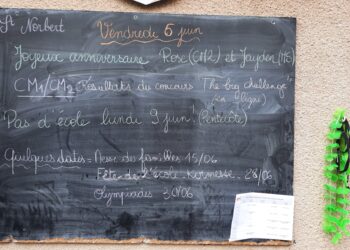 St Norbert
Vendredi 6 juin
Joyeux anniversaire Rose (CM2) et Jayden
CM1/CM2 Résultats du concours "The big challenge"
(en ligne)
Pas d'école lundi 9 juin! (Pentecôte)
Quelques dates: Messe des familles 15/06
Fête de l'école kermesse 28/06
Olympiades 30/06